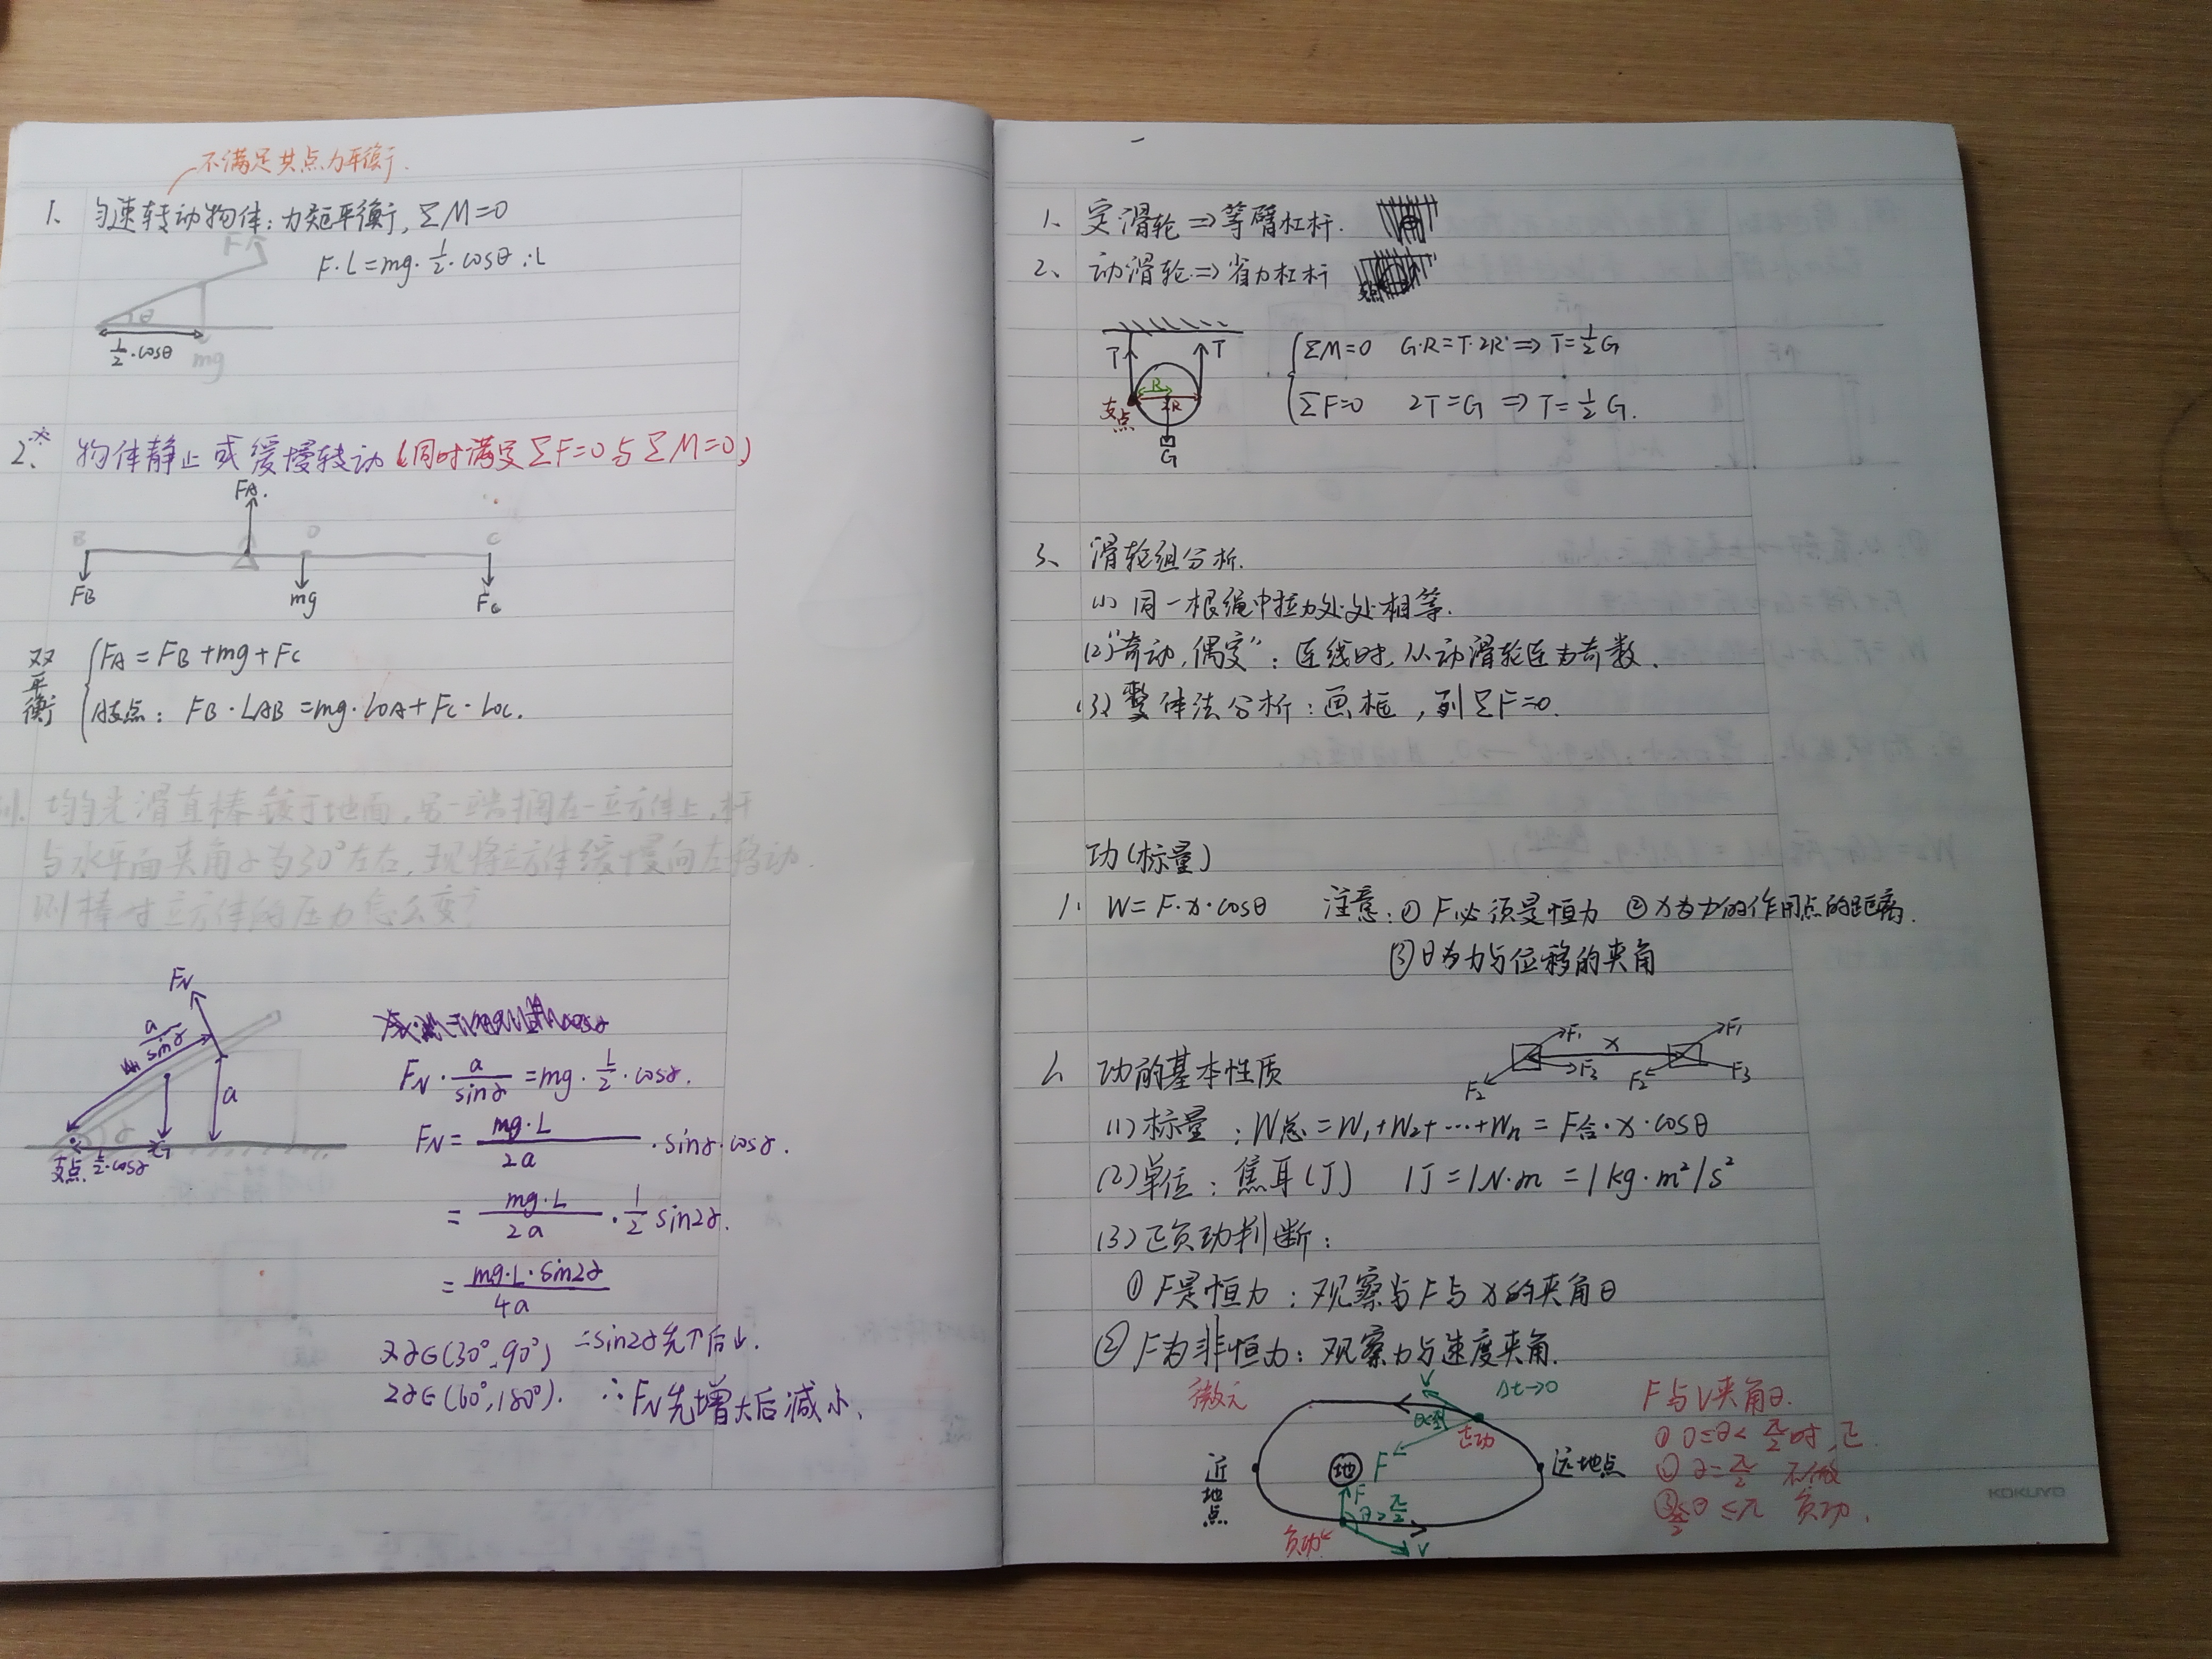 不满足共点力平衡.
1、匀速转动物体:力矩平衡, ΣM=0
F·L=mg·½·cosθ·L
F
θ
½·cosθ
mg
2、* 物体静止或缓慢转动(同时满足ΣF=0与ΣM=0)
FA.
B
O
C
FB
mg
Fc
双平衡
FA=FB+mg+Fc
A支点: FB·LAB=mg·LOA+Fc·LOC.
例. 均匀光滑直棒铰于地面,另一端搁在一立方体上,杆
与水平面夹角α为30°左右,现将立方体缓慢向左移动.
则棒对立方体的压力怎么变?
FN
a/sinα
a
α
支点
L/2·cosα
G
FN·a/sinα=mg·L/2·cosα.
FN=mg·L/2a·sinα·cosα.
=mg·L/2a·1/2 sin2α.
=mg·L·sin2α/4a
α∈(30°,90°) =sin2α先↑后↓.
2α∈(60°,180°). ∴FN先增大后减小.
1、定滑轮⇒等臂杠杆.
2、动滑轮⇒省力杠杆
支点
T
T
R
2R
支点
G
ΣM=0 G·R=T·2R⇒T=½G
ΣF=0 2T=G⇒T=½G.
3、滑轮组分析.
(1) 同一根绳中拉力处处相等.
(2)"奇动,偶定":连线时,从动滑轮连为奇数.
(3) 整体法分析:画框,列ΣF=0.
功(标量)
1. W=F·x·cosθ 注意:① F必须是恒力 ②x为力的作用点的距离.
③θ为力与位移的夹角
2、功的基本性质
F1
F2
F3
x
F1
F2
F3
(1)标量:W总=W1+W2+…+Wn=F合·x·cosθ
(2)单位:焦耳(J) 1J=1N·m=1kg·m²/s²
(3)正负功判断:
① F是恒力:观察与F与x的夹角θ
② F为非恒力:观察力与速度夹角.
微元
V
Δt→0
θ<π/2
正功
F
地
近地点
远地点
F
θ>π/2
负功
V
F与V夹角θ.
① 0≤θ<π/2时,正.
② θ=π/2 不做
③ π/2<θ≤π 负功.
KOKUYO